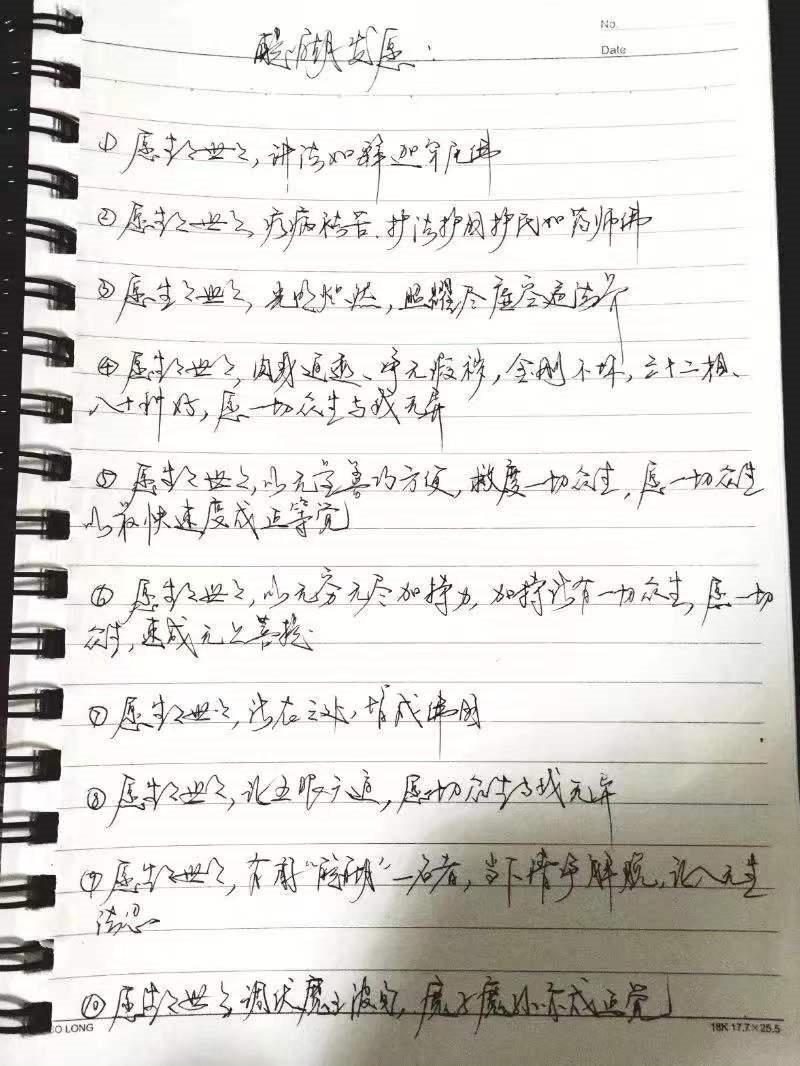 No.
Date
醍醐发愿：
① 愿生生世世，讲法如释迦牟尼佛
② 愿生生世世，疗病祛苦、护法护国护民如药师佛
③ 愿生生世世，光明炽燃，照耀尽虚空遍法界
④ 愿生生世世，肉身通透、净无瑕秽，金刚不坏，三十二相、
八十种好，愿一切众生与我无异
⑤ 愿生生世世，以无量善巧方便，救度一切众生，愿一切众生
以最快速度成正等觉
⑥ 愿生生世世，以无穷无尽加持力，加持法有一切众生，愿一切
众生，速成无上菩提
⑦ 愿生生世世，法在之处，皆成佛国
⑧ 愿生生世世，证五眼六通，愿一切众生与我无异
⑨ 愿生生世世，有闻“醍醐”一名者，当下清净解脱，证入无生
法忍
⑩ 愿生生世世，调伏魔王波旬，魔子魔孙亦成正觉
LONG
18K 17.7×25.5